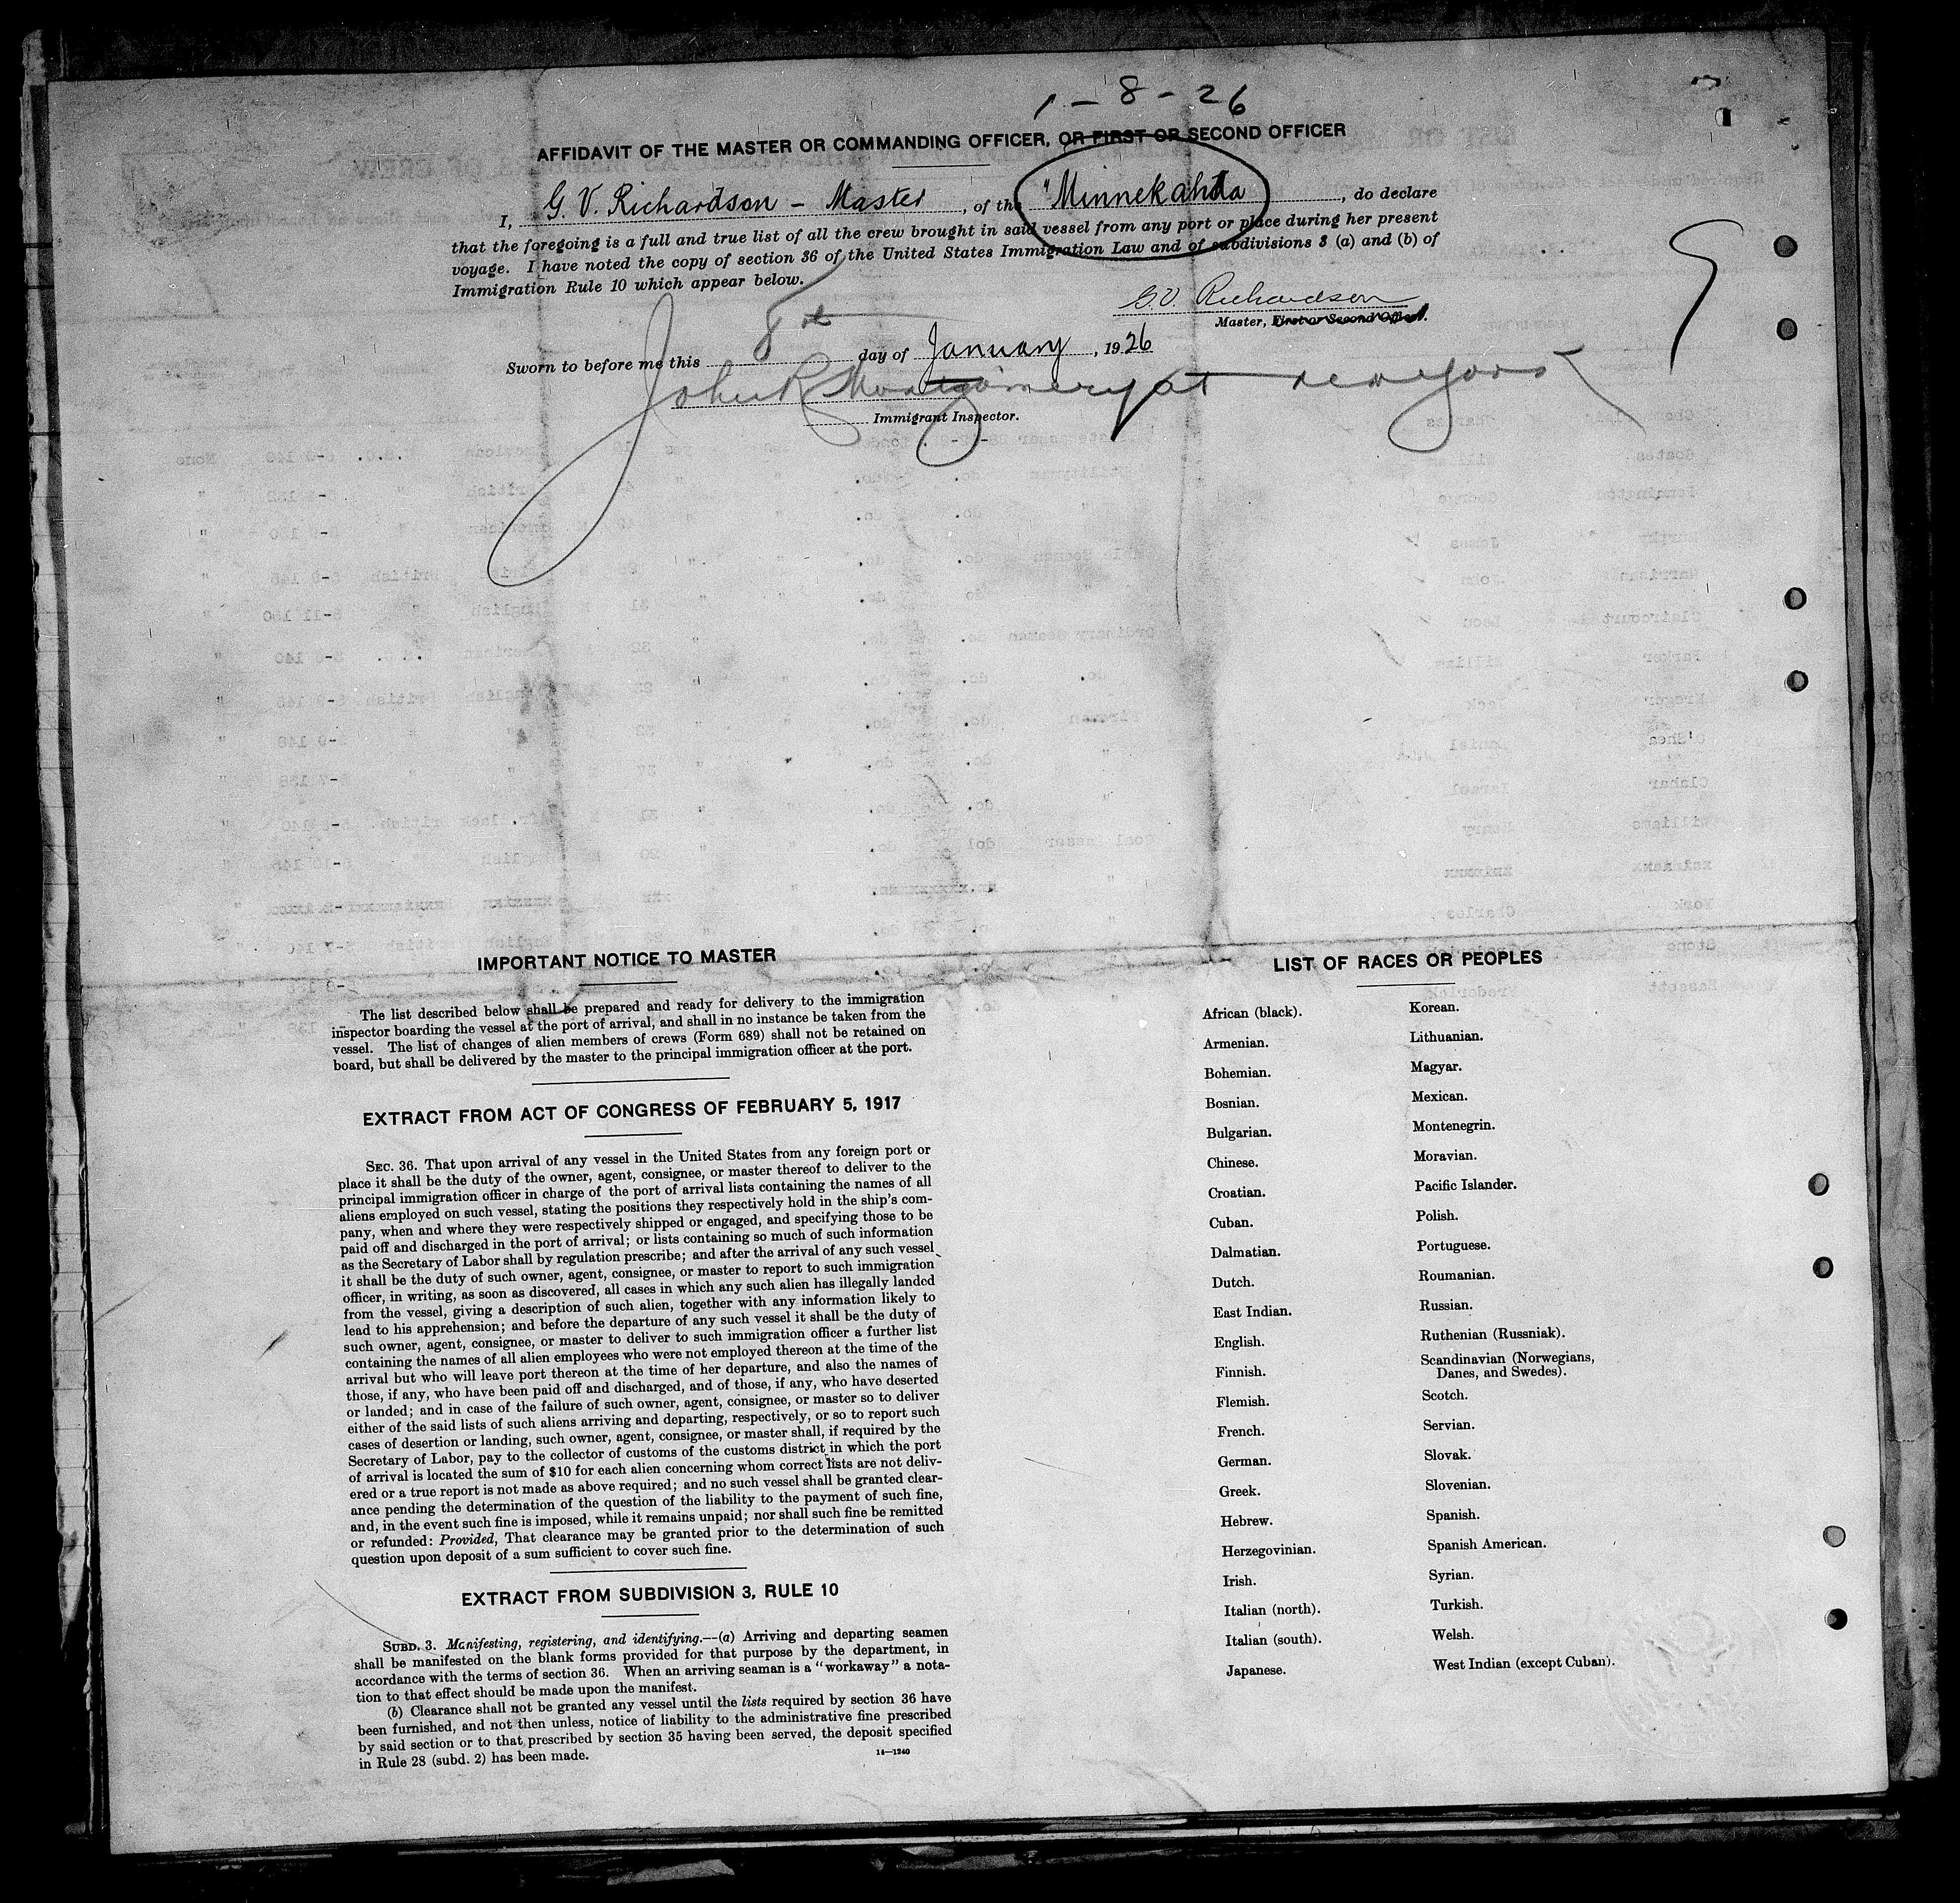 1-8-26
AFFIDAVIT OF THE MASTER OR COMMANDING OFFICER, OR FIRST OR SECOND OFFICER
I, G. V. Richardson - Master, of the "Minnekahda, do declare
that the foregoing is a full and true list of all the crew brought in said vessel from any port or place during her present
voyage. I have noted the copy of section 36 of the United States Immigration Law and of subdivisions 3 (a) and (b) of
Immigration Rule 10 which appear below.
G.V. Richardson
Master, First or Second Officer.
Sworn to before me this 8th day of January, 1926
John R Montgomery at new york
Immigrant Inspector.
IMPORTANT NOTICE TO MASTER
The list described below shall be prepared and ready for delivery to the immigration
inspector boarding the vessel at the port of arrival, and shall in no instance be taken from the
vessel. The list of changes of alien members of crews (Form 689) shall not be retained on
board, but shall be delivered by the master to the principal immigration officer at the port.
EXTRACT FROM ACT OF CONGRESS OF FEBRUARY 5, 1917
SEC. 36. That upon arrival of any vessel in the United States from any foreign port or
place it shall be the duty of the owner, agent, consignee, or master thereof to deliver to the
principal immigration officer in charge of the port of arrival lists containing the names of all
aliens employed on such vessel, stating the positions they respectively hold in the ship's com-
pany, when and where they were respectively shipped or engaged, and specifying those to be
paid off and discharged in the port of arrival; or lists containing so much of such information
as the Secretary of Labor shall by regulation prescribe; and after the arrival of any such vessel
it shall be the duty of such owner, agent, consignee, or master to report to such immigration
officer, in writing, as soon as discovered, all cases in which any such alien has illegally landed
from the vessel, giving a description of such alien, together with any information likely to
lead to his apprehension; and before the departure of any such vessel it shall be the duty of
such owner, agent, consignee, or master to deliver to such immigration officer a further list
containing the names of all alien employees who were not employed thereon at the time of the
arrival but who will leave port thereon at the time of her departure, and also the names of
those, if any, who have been paid off and discharged, and of those, if any, who have deserted
or landed; and in case of the failure of such owner, agent, consignee, or master so to deliver
either of the said lists of such aliens arriving and departing, respectively, or so to report such
cases of desertion or landing, such owner, agent, consignee, or master shall, if required by the
Secretary of Labor, pay to the collector of customs of the customs district in which the port
of arrival is located the sum of $10 for each alien concerning whom correct lists are not deliv-
ered or a true report is not made as above required; and no such vessel shall be granted clear-
ance pending the determination of the question of the liability to the payment of such fine,
and, in the event such fine is imposed, while it remains unpaid; nor shall such fine be remitted
or refunded: Provided, That clearance may be granted prior to the determination of such
question upon deposit of a sum sufficient to cover such fine.
EXTRACT FROM SUBDIVISION 3, RULE 10
SUBD. 3. Manifesting, registering, and identifying.—(a) Arriving and departing seamen
shall be manifested on the blank forms provided for that purpose by the department, in
accordance with the terms of section 36. When an arriving seaman is a "workaway" a nota-
tion to that effect should be made upon the manifest.
(b) Clearance shall not be granted any vessel until the lists required by section 36 have
been furnished, and not then unless, notice of liability to the administrative fine prescribed
by said section or to that prescribed by section 35 having been served, the deposit specified
in Rule 28 (subd. 2) has been made.
14—1240
LIST OF RACES OR PEOPLES
African (black).
Armenian.
Bohemian.
Bosnian.
Bulgarian.
Chinese.
Croatian.
Cuban.
Dalmatian.
Dutch.
East Indian.
English.
Finnish.
Flemish.
French.
German.
Greek.
Hebrew.
Herzegovinian.
Irish.
Italian (north).
Italian (south).
Japanese.
Korean.
Lithuanian.
Magyar.
Mexican.
Montenegrin.
Moravian.
Pacific Islander.
Polish.
Portuguese.
Roumanian.
Russian.
Ruthenian (Russniak).
Scandinavian (Norwegians,
Danes, and Swedes).
Scotch.
Servian.
Slovak.
Slovenian.
Spanish.
Spanish American.
Syrian.
Turkish.
Welsh.
West Indian (except Cuban).